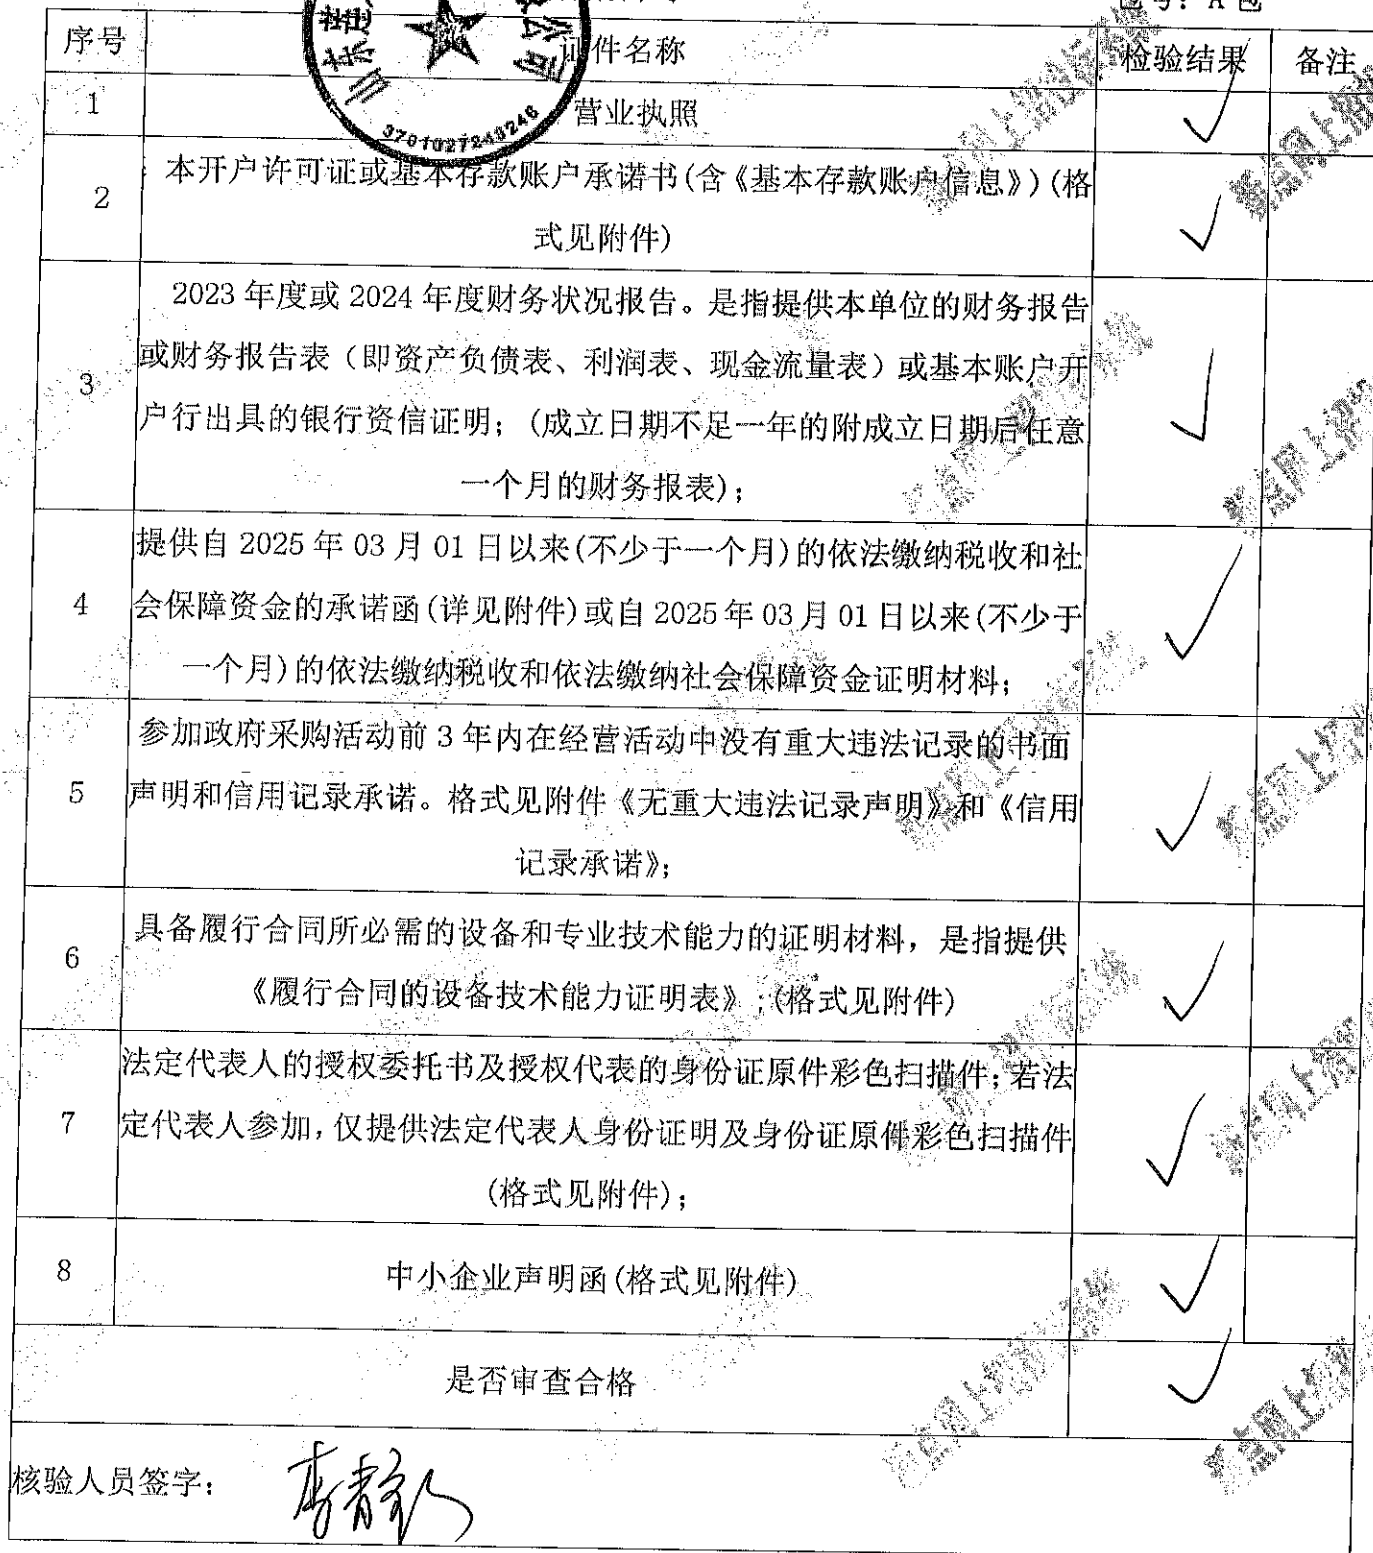 包号：A包
序号 证件名称 检验结果 备注
3701027243246
1 营业执照 ✓
2 本开户许可证或基本存款账户承诺书(含《基本存款账户信息》)(格
式见附件) ✓
2023 年度或 2024 年度财务状况报告。是指提供本单位的财务报告
或财务报告表（即资产负债表、利润表、现金流量表）或基本账户开
3 ✓
户行出具的银行资信证明；(成立日期不足一年的附成立日期后任意
一个月的财务报表)；
提供自 2025 年 03 月 01 日以来(不少于一个月)的依法缴纳税收和社
4 会保障资金的承诺函(详见附件)或自 2025 年 03 月 01 日以来(不少于 ✓
一个月)的依法缴纳税收和依法缴纳社会保障资金证明材料；
参加政府采购活动前 3 年内在经营活动中没有重大违法记录的书面
5 声明和信用记录承诺。格式见附件《无重大违法记录声明》和《信用 ✓
记录承诺》；
6 具备履行合同所必需的设备和专业技术能力的证明材料，是指提供 ✓
《履行合同的设备技术能力证明表》;(格式见附件)
法定代表人的授权委托书及授权代表的身份证原件彩色扫描件；若法
7 定代表人参加，仅提供法定代表人身份证明及身份证原件彩色扫描件 ✓
(格式见附件)；
8 中小企业声明函(格式见附件) ✓
是否审查合格 ✓
核验人员签字：